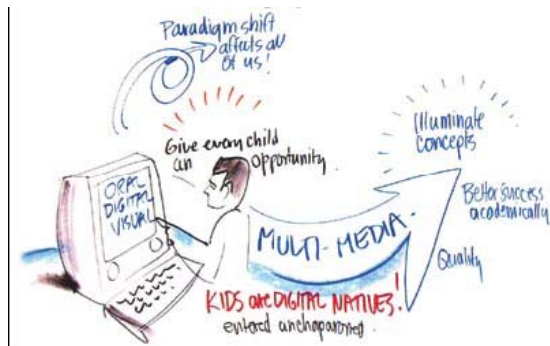 Paradigm shift
affects all
of us!
Give every child
an opportunity.
ORAL
DIGITAL
VISUAL
MULTI-MEDIA
Illuminate
concepts
Better success
academically
Quality
KIDS are DIGITAL NATIVES!
entered unchaperoned.